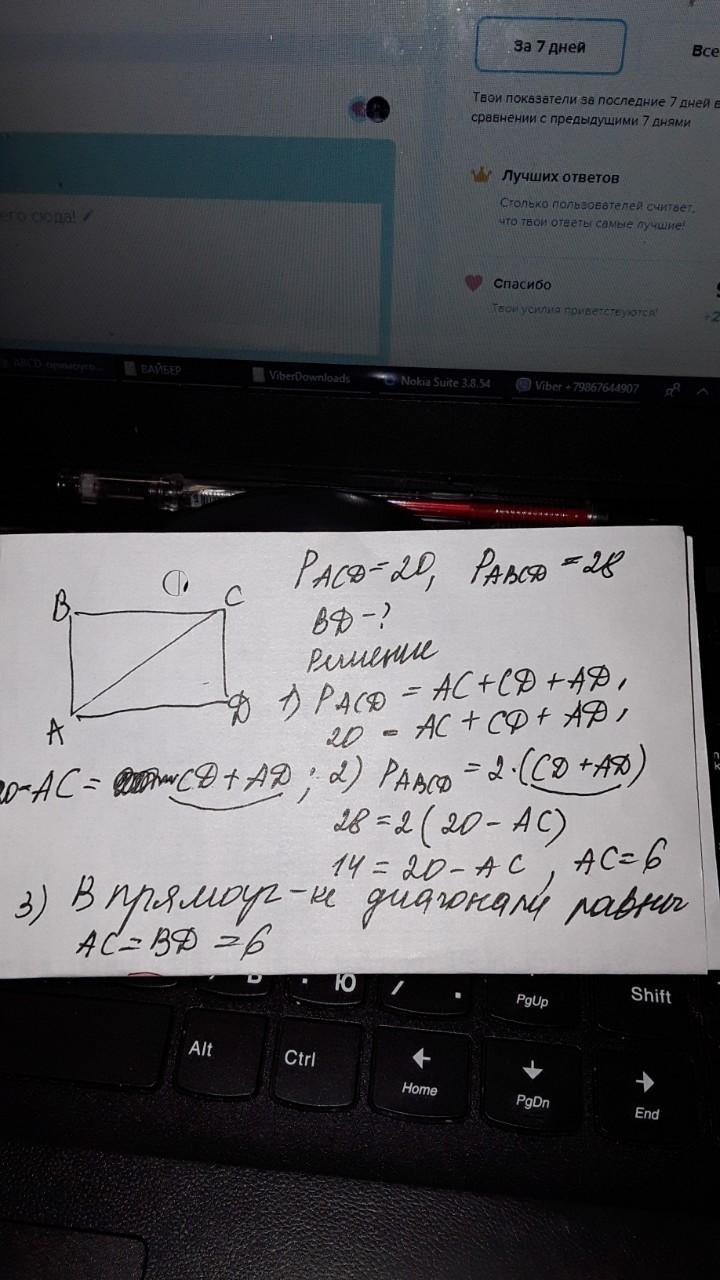 За 7 дней
Все
Твои показатели за последние 7 дней в
сравнении с предыдущими 7 днями
Лучших ответов
Столько пользователей считает,
что твои ответы самые лучшие!
его сюда!
Спасибо
Твои усилия приветствуются!
+2
ABCD-прямоуго...
ВАЙБЕР
ViberDownloads
Nokia Suite 3.8.54
Viber +79867644907
B
C
A
D
PACD=20, PABCD=28
BD-?
Решение
1) PACD = AC+CD+AD,
20 = AC+CD+AD,
20-AC = CD+AD; 2) PABCD=2·(CD+AD)
28=2(20-AC)
14=20-AC, AC=6
3) В прямоуг-ке диагонали равны
AC=BD=6
Ю
PgUp
Shift
Alt
Ctrl
Home
PgDn
End